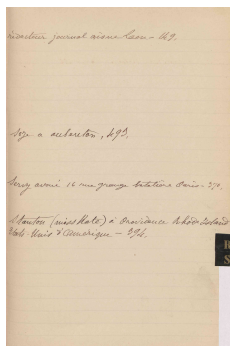 Rédacteur journal aisne Laon - 49.
Soze a aubreton, 493.
Servy avoué 16 rue grange batelière Paris - 370.
Stanton (miss Kate) à Providence Rhode Island
Etats-Unis d'Amérique - 394.